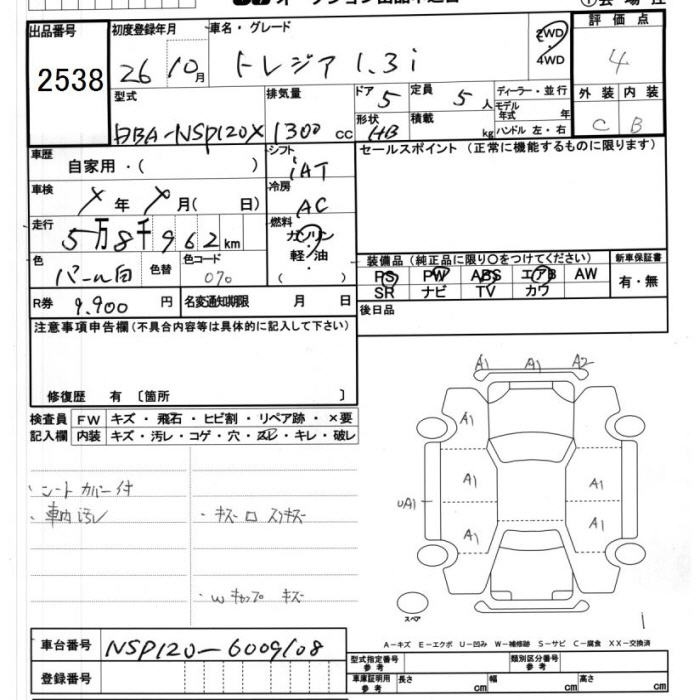 出品番号 初度登録年月 車名・グレード 評価点
2538 26 10月 トレジア 1.3i 2WD 4
4WD
型式 排気量 ドア 5 定員 5人 ディーラー・並行 外装 内装
モデル年式 年
DBA-NSP120X 1300cc 形状 HB 積載 kg ハンドル 左・右 C B
車歴 シフト セールスポイント (正常に機能するものに限ります)
自家用・( ) iAT
車検 冷房
X年 X月( 日) AC
走行 燃料
5万8千962km ガソリン
軽油 装備品 (純正品に限り〇をつけてください) 新車保証書
色 色替 色コード ・
パール白 070 ( ) PS PW ABS エアB AW 有・無
SR ナビ TV カワ
R券 9,900円 名変通知期限 月 日 後日品
注意事項申告欄 (不具合内容等は具体的に記入して下さい)
修復歴 有 〔箇所 〕
検査員 FW キズ・飛石・ヒビ割・リペア跡・×要
記入欄 内装 キズ・汚レ・コゲ・穴・スレ・キレ・破レ
A1 A1 A2
A1
A1 A1
UA1
A1 A1
・シートカバー付
・車内汚レ ・キズ ロ スリキズ
・Wキャップ キズ
スペア
1
A-キズ E-エクボ U-凹み W-補修跡 S-サビ C-腐食 XX-交換済
車台番号 NSP120-6009108
型式指定番号 参考 類別区分番号 参考
登録番号 車庫証明用 参考 長さ cm 幅 cm 高さ cm